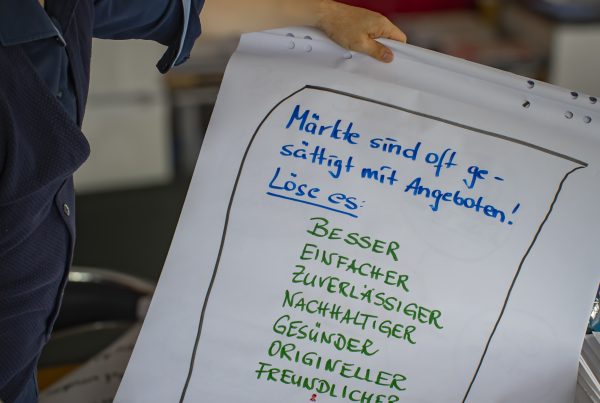 Märkte sind oft ge-
sättigt mit Angeboten!
Löse es:
BESSER
EINFACHER
ZUVERLÄSSIGER
NACHHALTIGER
GESÜNDER
ORIGINELLER
FREUNDLICHER